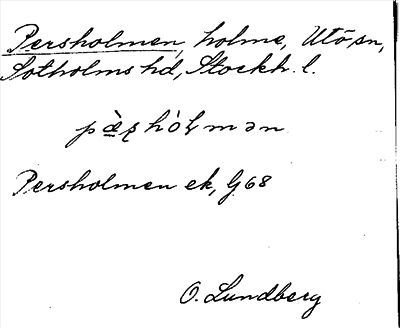 Persholmen, holme, Utö sn,
Sotholms hd, Stockh. l.
pæ̀ʂhòɫmən
Persholmen ek, G68
O. Lundberg